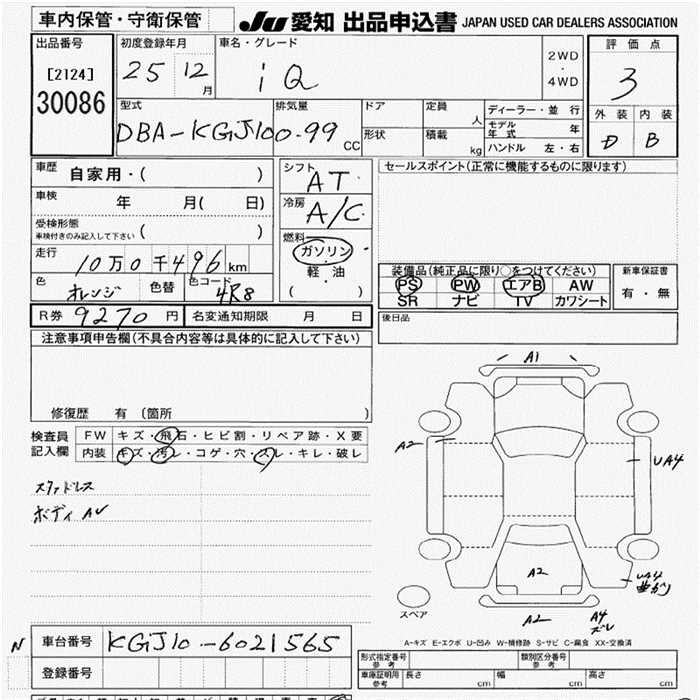 車内保管・守衛保管 JU 愛知 出品申込書 JAPAN USED CAR DEALERS ASSOCIATION
出品番号 初度登録年月 車名・グレード 2WD ・ 4WD 評価点
[2124] 25 12月 iQ 3
30086
型式 排気量 ドア 定員 人 ディーラー・並行 外装 内装
DBA-KGJ10 0.99 CC 形状 積載 kg モデル年式 年 D B
ハンドル 左・右
車歴 自家用・( ) シフト AT セールスポイント(正常に機能するものに限ります)
車検 年 月( 日) 冷房 A/C
受検形態 ( )
車検付きのみ記入して下さい
燃料 ガソリン・軽油 ( )
走行 10万0千496km
色 オレンジ 色替 色コード 4R8
装備品(純正品に限り○をつけてください) 新車保証書
PS PW エアB AW 有・無
SR ナビ TV カワシート
R券 9270円 名変通知期限 月 日 後日品
注意事項申告欄(不具合内容等は具体的に記入して下さい)
修復歴 有 (箇所 )
検査員記入欄 FW キズ・飛石・ヒビ割・リペア跡・X要
内装 キズ・汚レ・コゲ・穴・スレ・キレ・破レ
スタッドレス
ボディ AU
A1
A2
UA4
A2
UA4 曲がり
A2
A4 ズレ
スペア
A-キズ E-エクボ U-凹み W-補修跡 S-サビ C-腐食 XX-交換済
N 車台番号 KGJ10-6021565
登録番号
形式指定番号 参考 類別区分番号 参考
車庫証明用 参考 長さ cm 幅 cm 高さ cm